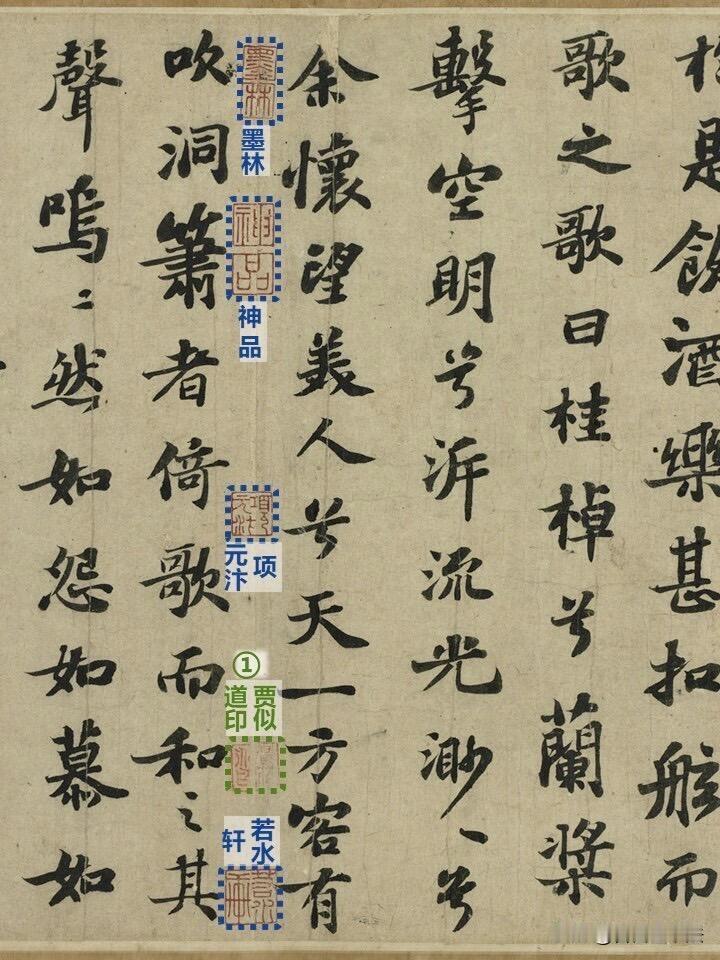 於是飲酒樂甚扣舷而
歌之歌曰桂棹兮蘭槳
擊空明兮泝流光渺〻兮
余懷望美人兮天一方客有
墨林
墨林
神品
神品
项
元汴
①
贾似
道印
若水
轩
吹洞簫者倚歌而和之其
聲嗚〻然如怨如慕如